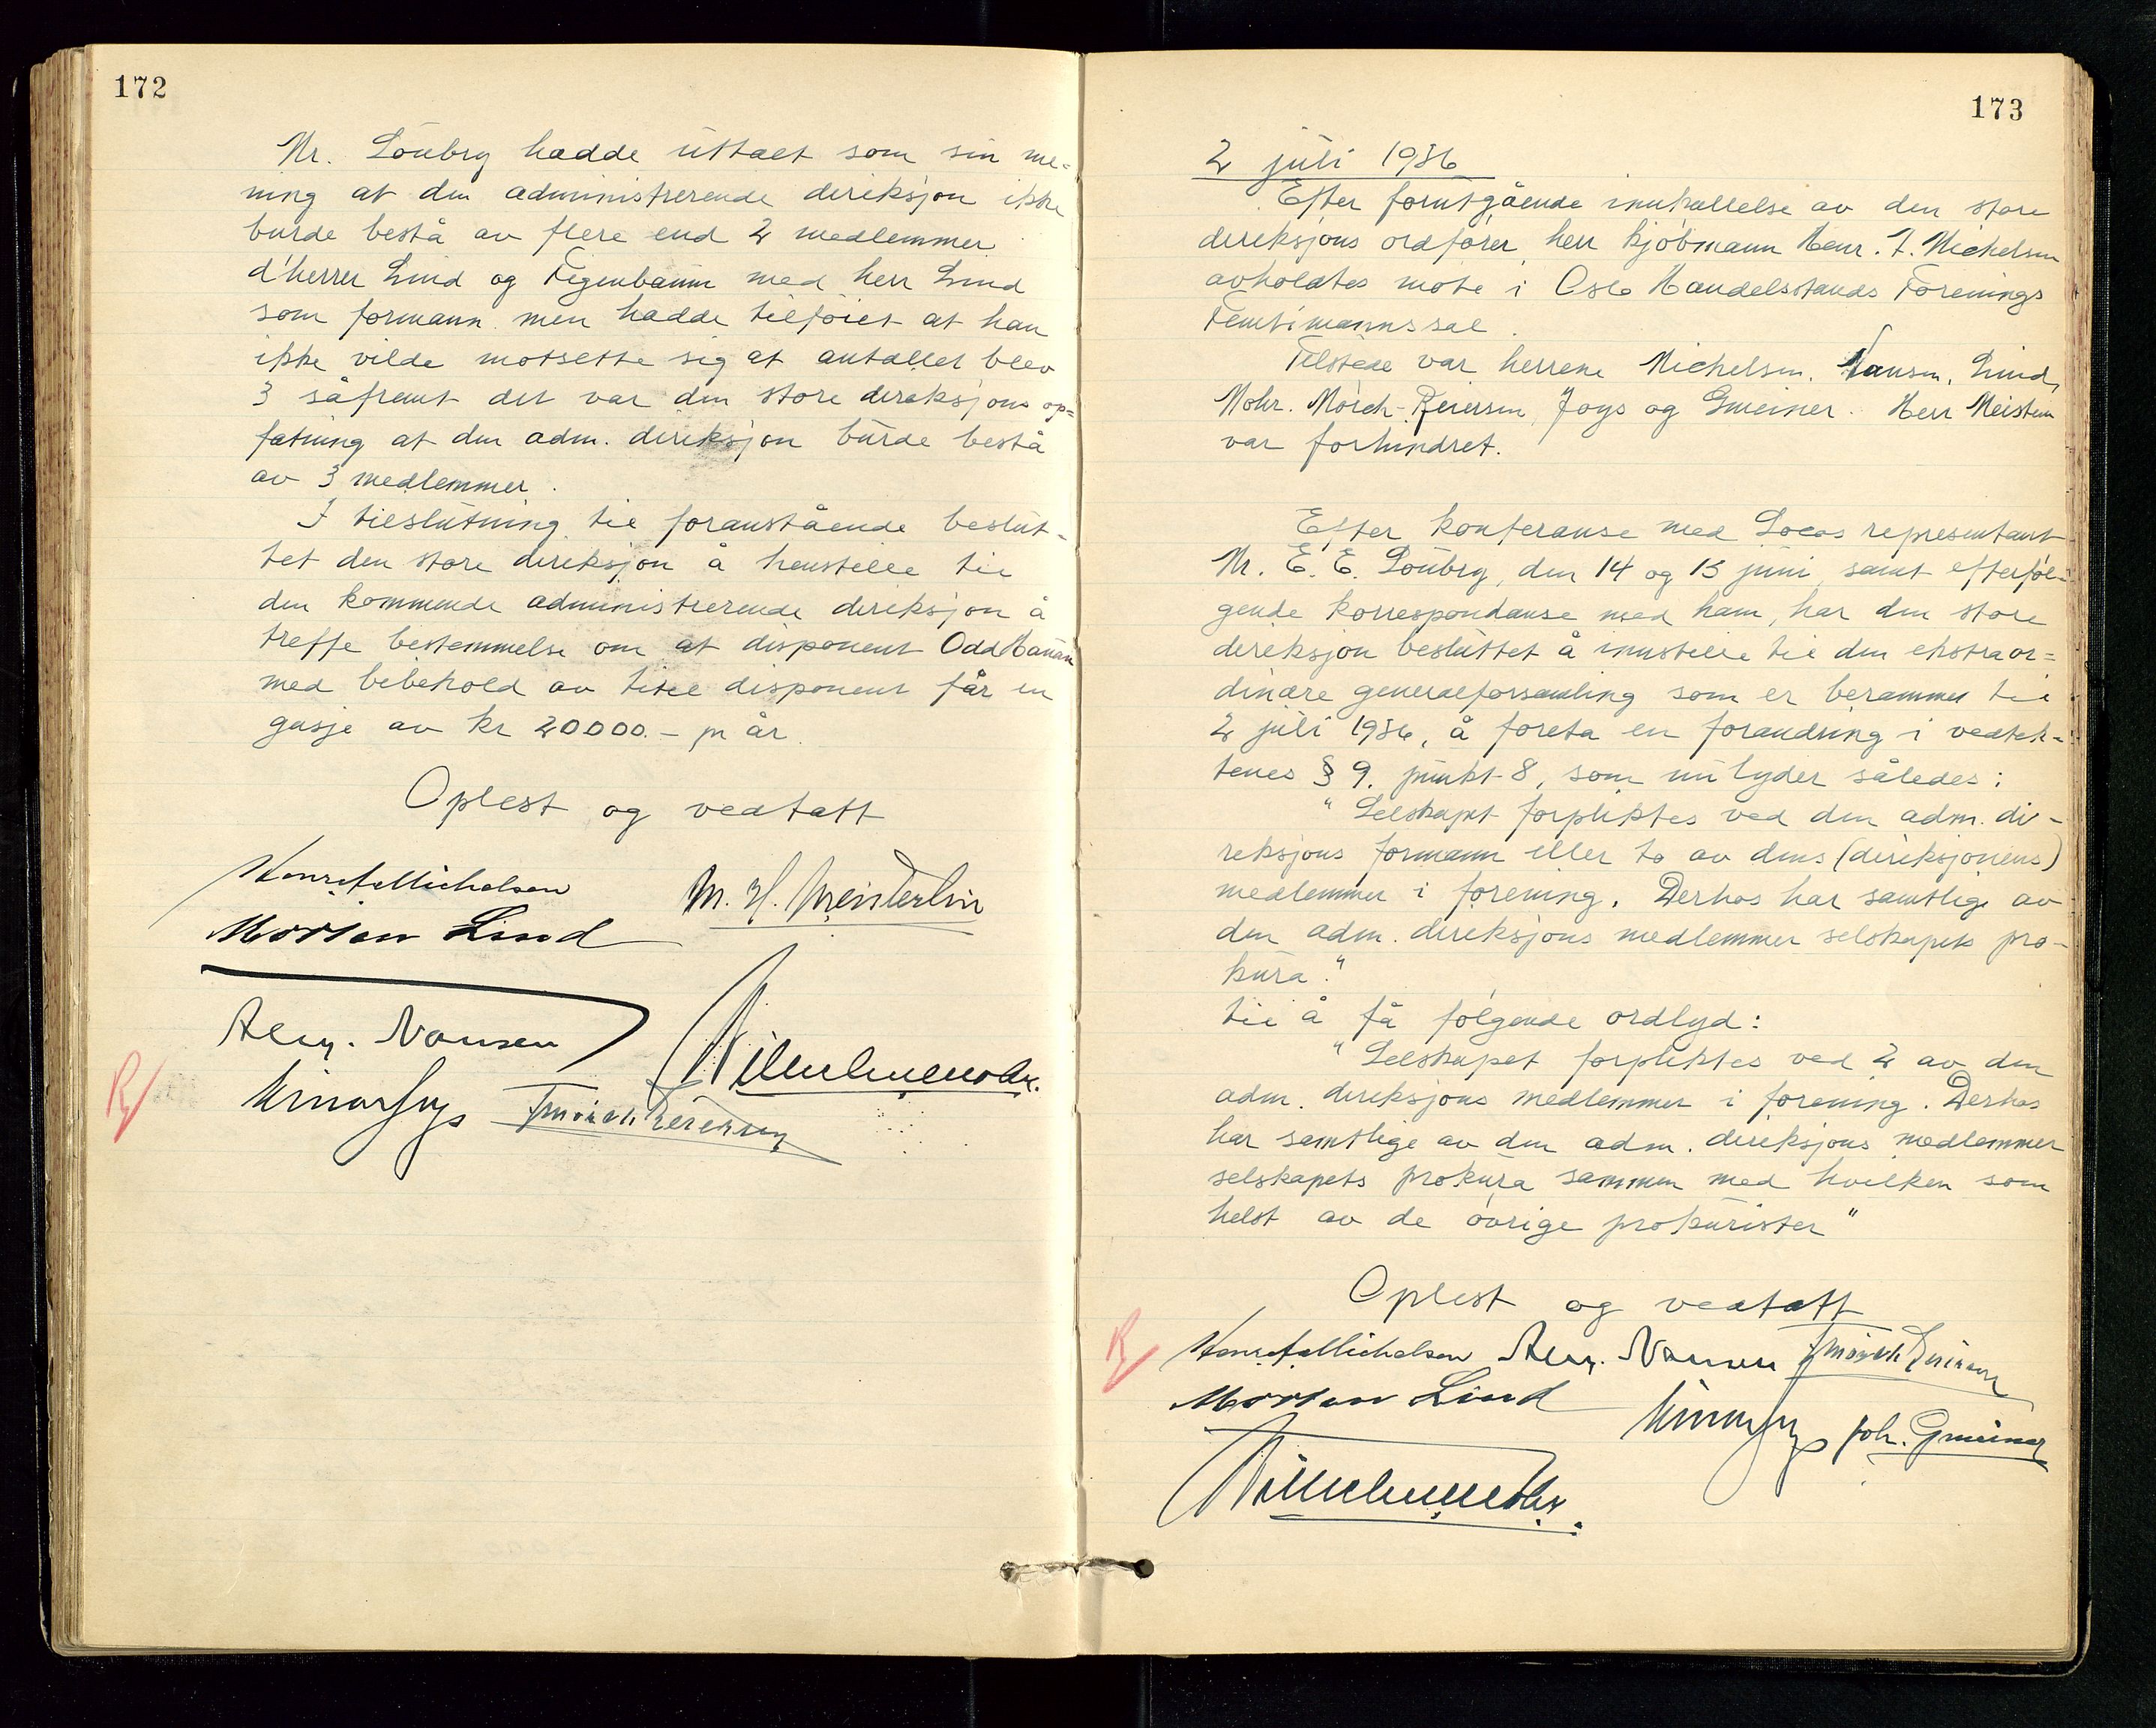 172
Mr. Soubry hadde uttalt som sin me-
ning at den administrerende direksjon ikke
burde bestå av flere end 2 medlemmer
d'herrer Lind og Feigenbaum med herr Lind
som formann men hadde tilføiet at han
ikke vilde motsette sig at antallet blev
3 såfremt det var den store direksjons op=
fatning at den adm. direksjon burde bestå
av 3 medlemmer.
I tilslutning til foranstående beslut-
tet den store direksjon å henstille til
den kommende administrerende direksjon å
treffe bestemmelse om at disponent Odd
med bibehold av titel disponent får en
gasje av kr 20000.- pr år.
Oplest og vedtatt
Henr. F. Michelsen
M. H. Meisterlin
Morten Lind
Alex. Nansen
Wilhelm Mohr.
Einar Joys
F Mørch Reiersen
173
2 juli 1936
Efter forutgående innkallelse av den store
direksjons ordfører, herr kjøbmann Henr. F. Michelsen
avholdtes møte i Oslo Handelsstands Forenings
Femtimannssal.
Tilstede var herrene Michelsen, Nansen, Lind,
Mohr. Mørch-Reiersen, Joys og Gmeiner. Herr Meisterlin
var forhindret.
Efter konferanse med Socos representant
Mr. E. E. Soubry, den 14 og 15 juni, samt efterføl-
gende korrespondanse med ham, har den store
direksjon besluttet å innstille til den ekstraor=
dinære generalforsamling som er berammet til
2 juli 1936, å foreta en forandring i vedtek-
tenes § 9. punkt 8, som nu lyder således:
"Selskapet forpliktes ved den adm. di-
reksjons formann eller to av dens (direksjonens)
medlemmer i forening. Derhos har samtlige av
den adm. direksjons medlemmer selskapets pro-
kura."
til å få følgende ordlyd:
"Selskapet forpliktes ved 2 av den
adm. direksjons medlemmer i forening. Derhos
har samtlige av den adm. direksjons medlemmer
selskapets prokura sammen med hvilken som
helst av de øvrige prokurister"
Oplest og vedtatt
Henr. F. Michelsen Alex. Nansen F Mørch Reiersen
Morten Lind
Einar Joys Joh. Gmeiner
Wilhelm Mohr.